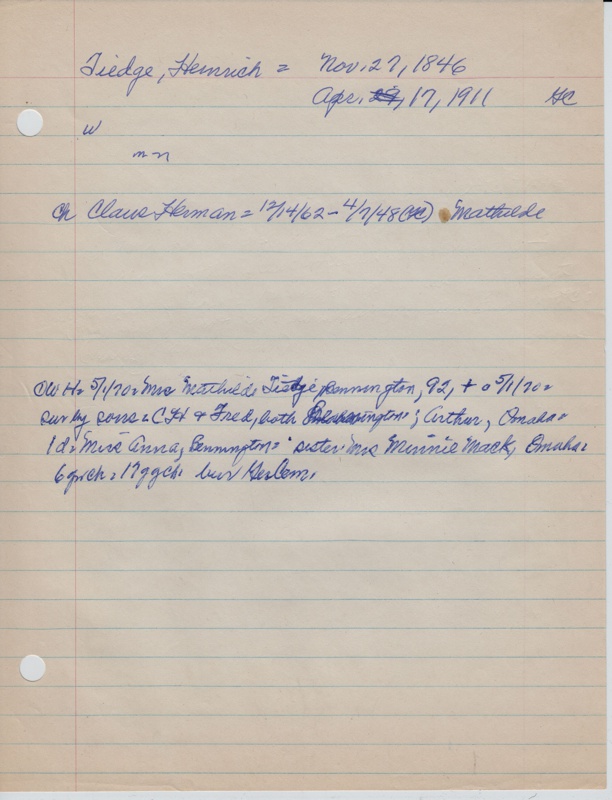 Tiedge, Heinrich = Nov. 27, 1846
Apr. 29, 17, 1911 GC
w
m-n
Ch Claus Herman = 12/14/62 - 4/7/48 (GC) Mathilde
OWH= 5/1/70= Mrs Mathilde Tiedge, Bennington, 92, + o 5/1/70=
sur by sons = CH & Fred, both Bennington= ; Arthur, Omaha=
1 d= Miss Anna, Bennington= sister Mrs Minnie Mack, Omaha=
6 grch= 17 ggch. bur Ger Cem.